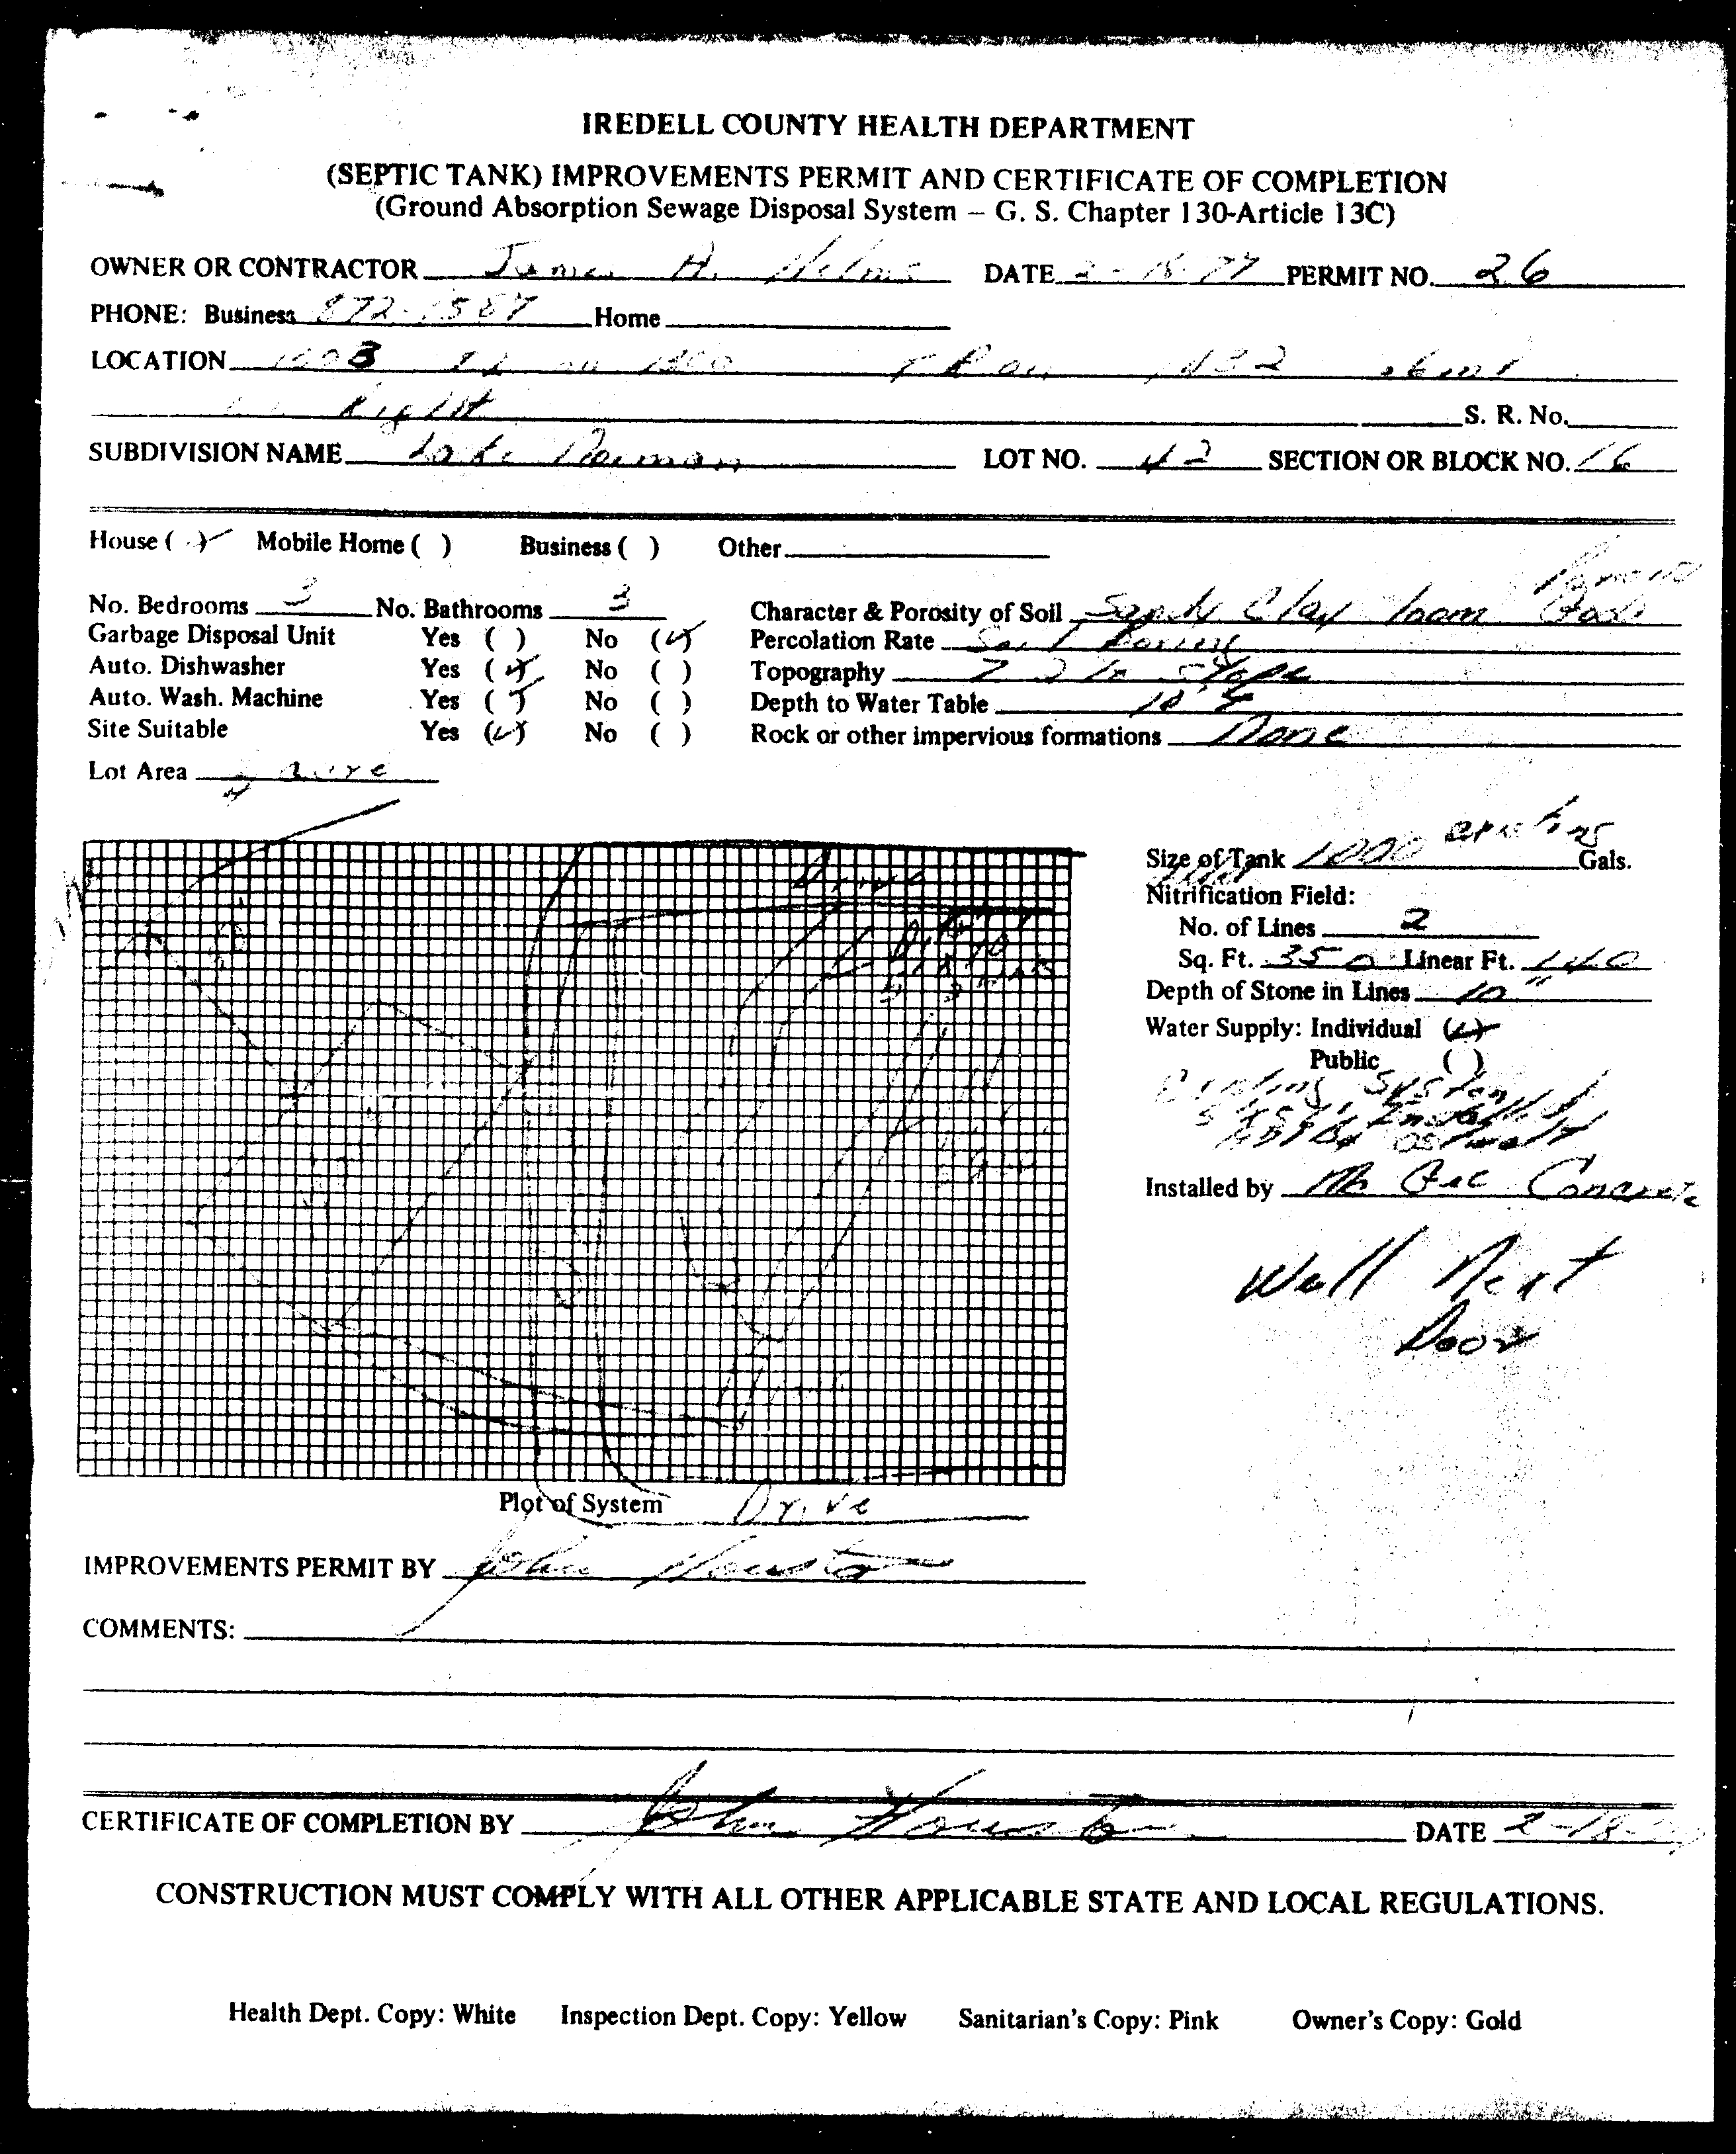 IREDELL COUNTY HEALTH DEPARTMENT
(SEPTIC TANK) IMPROVEMENTS PERMIT AND CERTIFICATE OF COMPLETION
(Ground Absorption Sewage Disposal System – G. S. Chapter 130-Article 13C)
OWNER OR CONTRACTOR James A. Helms DATE 2-18-77 PERMIT NO. 26
PHONE: Business 872- Home
LOCATION on
Right S. R. No.
SUBDIVISION NAME Lake Norman LOT NO. 42 SECTION OR BLOCK NO. 16
House (✓) Mobile Home ( ) Business ( ) Other
No. Bedrooms 3 No. Bathrooms 3 Character & Porosity of Soil Sandy Clay loam
Garbage Disposal Unit Yes ( ) No (✓) Percolation Rate Soil Boring
Auto. Dishwasher Yes (✓) No ( ) Topography slope
Auto. Wash. Machine Yes (✓) No ( ) Depth to Water Table 10'
Site Suitable Yes (✓) No ( ) Rock or other impervious formations None
Lot Area acre
Size of Tank 1000 existing Gals.
Nitrification Field:
No. of Lines 2
Sq. Ft. 350 Linear Ft. 140
Depth of Stone in Lines 10"
Water Supply: Individual (✓)
Public ( )
System
Installed
Installed by Concrete
Well Next
Door
Drive
Plot of System Drive
IMPROVEMENTS PERMIT BY John Houston
COMMENTS:
CERTIFICATE OF COMPLETION BY John Houston DATE 2-18-
CONSTRUCTION MUST COMPLY WITH ALL OTHER APPLICABLE STATE AND LOCAL REGULATIONS.
Health Dept. Copy: White Inspection Dept. Copy: Yellow Sanitarian's Copy: Pink Owner's Copy: Gold